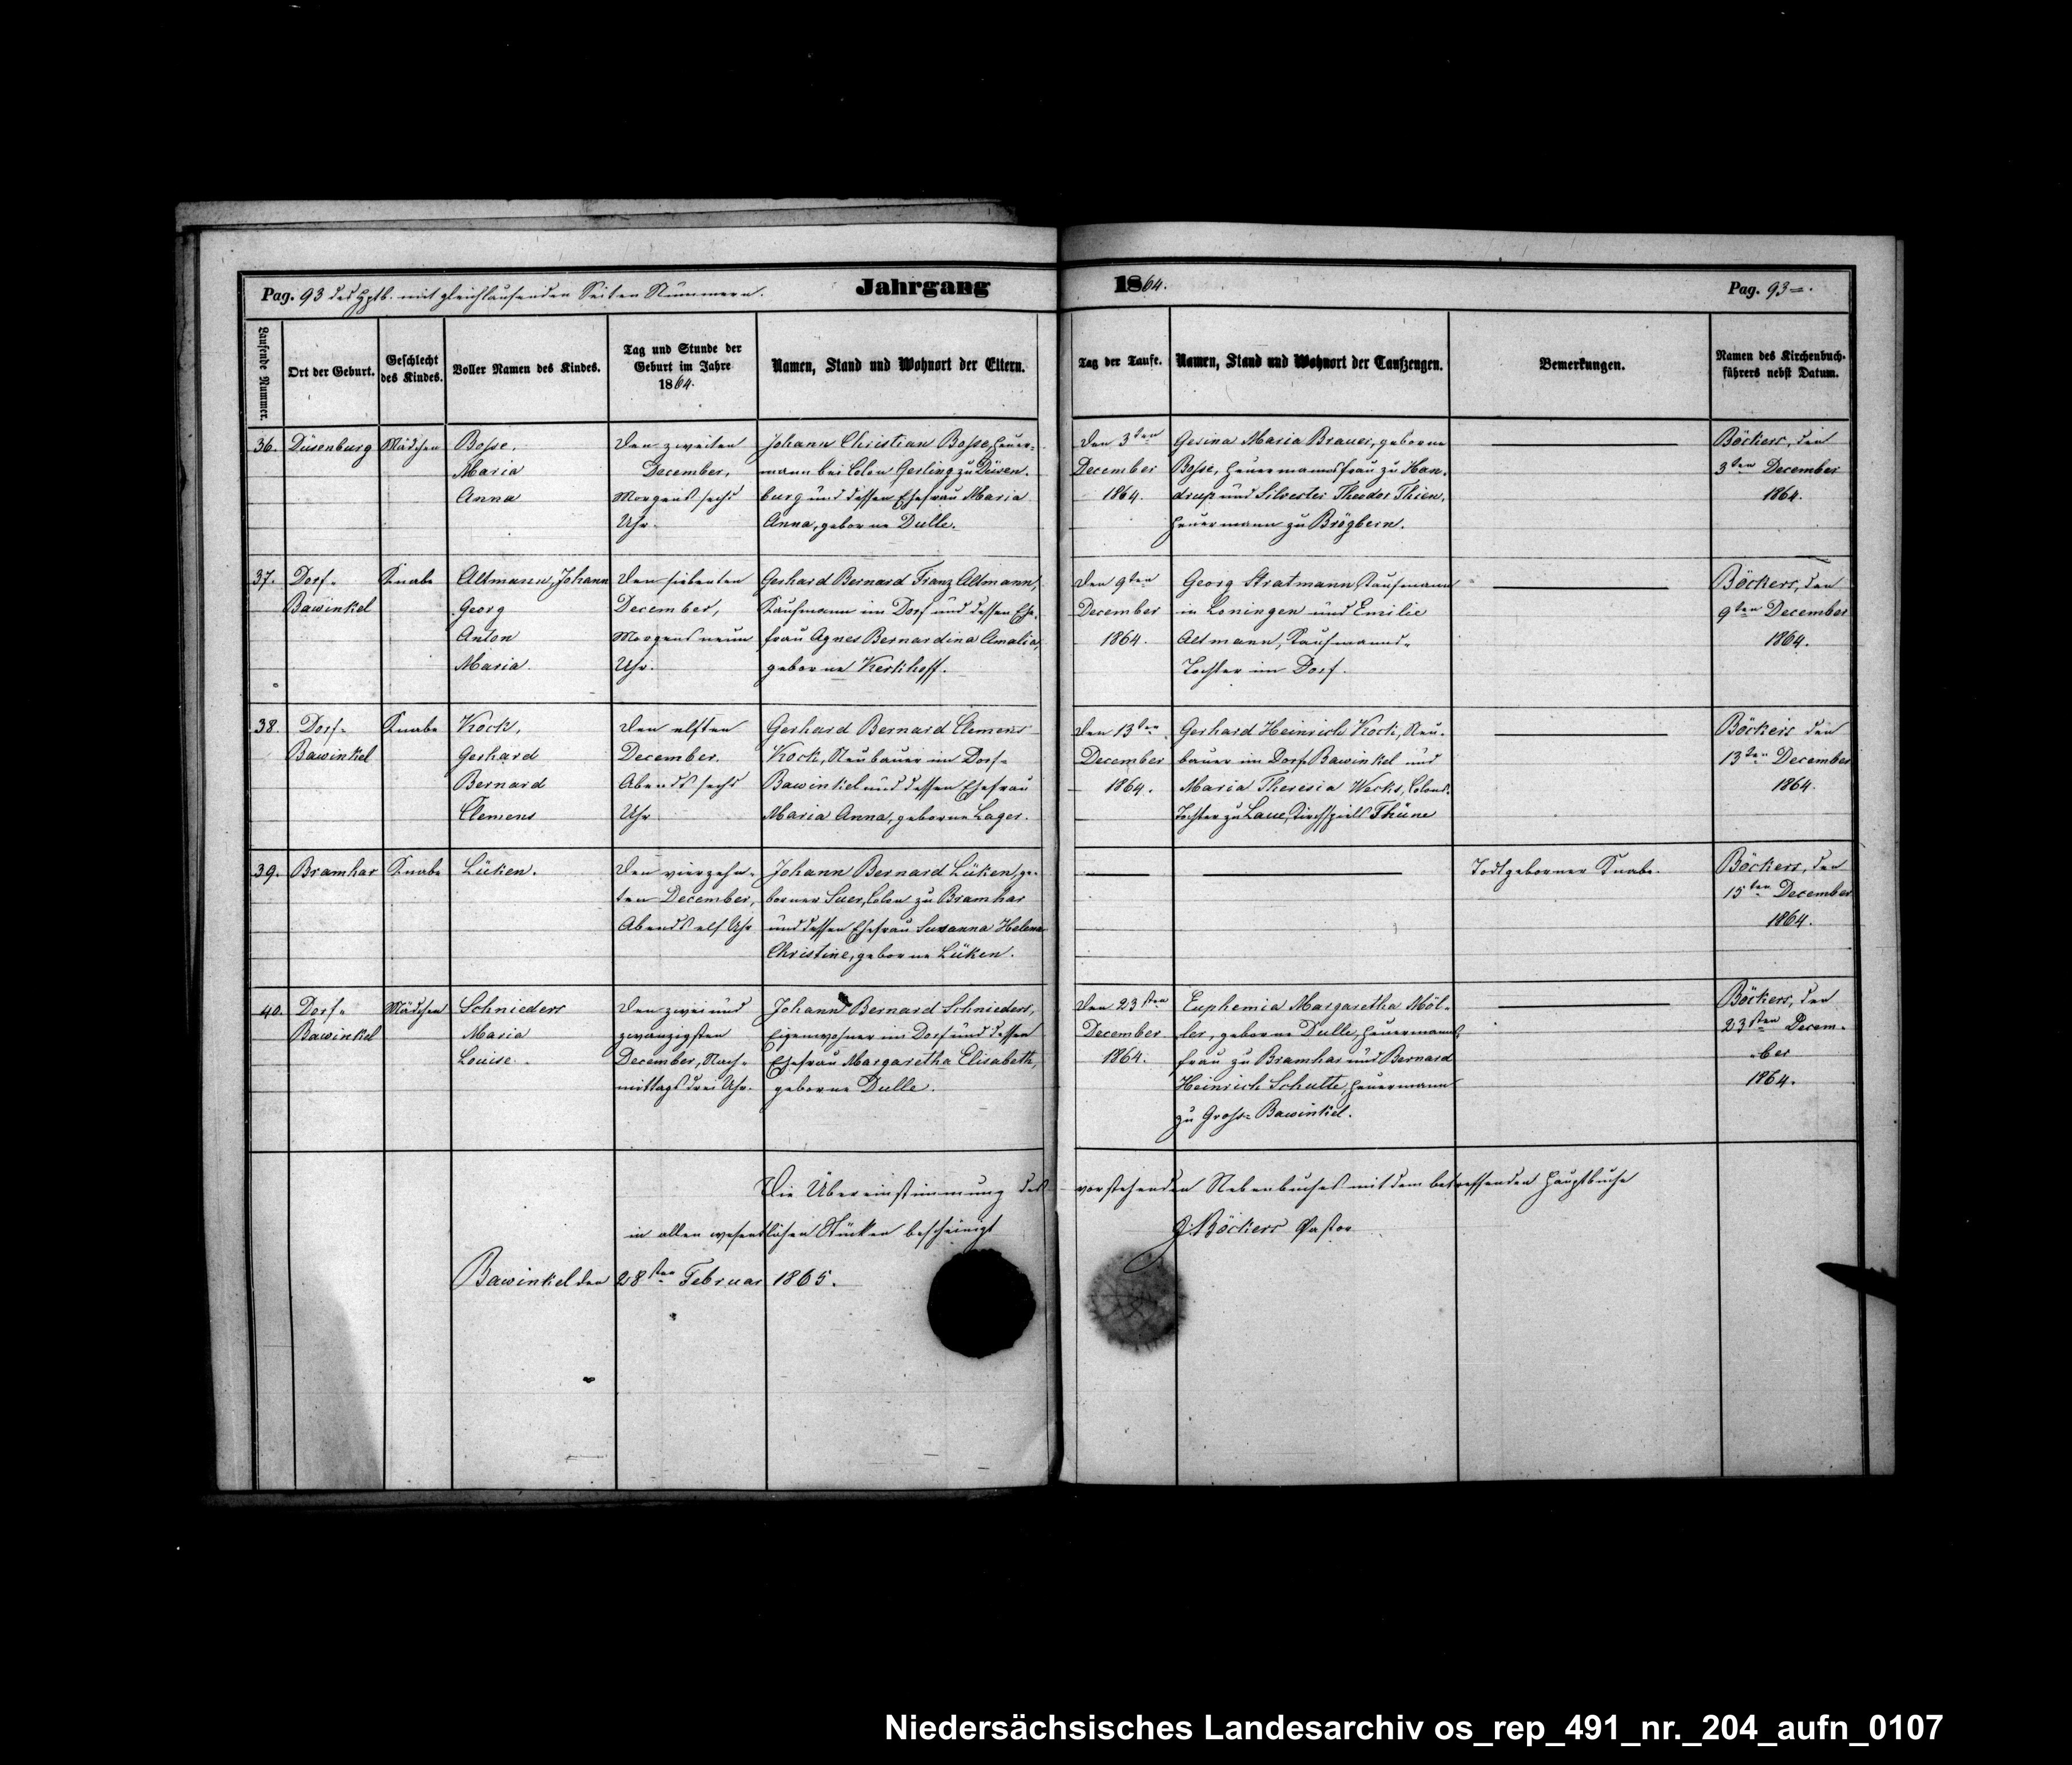 Pag. 93 des Hptb. mit gleichlaufenden Seiten Nummern.
Jahrgang 1864.
Pag. 93
Laufende Nummer.
Ort der Geburt.
Geschlecht
des Kindes.
Voller Namen des Kindes.
Tag und Stunde der
Geburt im Jahre
1864.
Namen, Stand und Wohnort der Eltern.
Tag der Taufe.
Namen, Stand und Wohnort der Taufzeugen.
Bemerkungen.
Namen des Kirchenbuch-
führers nebst Datum.
36.
Düsenburg
Mädchen
Bosse,
Maria
Anna
Den zweiten
December,
Morgens sechs
Uhr.
Johann Christian Bosse, Heuer-
mann bei Colon Gerling zu Düsen-
burg und dessen Ehefrau Maria
Anna, geborne Dulle.
Den 3ten
December
1864.
Gesina Maria Brauer, geborne
Bosse, Heuermannsfrau zu Han-
drup und Silvester Theodor Thien,
Heuermann zu Brögbern.
Böckers, den
3ten December
1864.
37.
Dorf-
Bawinkel
Knabe
Altmann, Johann
Georg
Anton
Maria.
Den siebenten
December,
Morgens neun
Uhr.
Gerhard Bernard Franz Altmann,
Kaufmann im Dorf und dessen Ehe-
frau Agnes Bernardina Amalia,
geborne Kerkhoff.
Den 9ten
December
1864.
Georg Stratmann, Kaufmann
in Loningen und Emilie
Altmann, Kaufmanns-
Tochter im Dorf.
Böckers, den
9ten December
1864.
38.
Dorf-
Bawinkel
Knabe
Kock,
Gerhard
Bernard
Clemens
Den elften
December.
Abends sechs
Uhr
Gerhard Bernard Clemens
Kock, Neubauer im Dorf-
Bawinkel und dessen Ehefrau
Maria Anna, geborne Lager.
Den 13ten
December
1864.
Gerhard Heinrich Kock, Neu-
bauer im Dorf-Bawinkel und
Maria Theresia Merks, Colons-
Tochter zu Laue, Kirchspiels Thüne
Böckers den
13ten December
1864.
39.
Bramhar
Knabe
Lüken.
Den vierzehn-
ten December,
Abends elf Uhr
Johann Bernard Lüken, ge-
borner Suer, Colon zu Bramhar
und dessen Ehefrau Susanna Helena
Christine, geborne Lüken.
Todtgeborner Knabe.
Böckers, den
15ten December
1864.
40.
Dorf-
Bawinkel
Mädchen
Schnieders
Maria
Louise.
Den zwei und
zwanzigsten
December, Nach-
mittags drei Uhr.
Johann Bernard Schnieders,
Eigenwohner im Dorf und dessen
Ehefrau Margaretha Elisabeth,
geborne Dulle.
Den 23sten
December
1864.
Euphemia Margaretha Möl-
ler, geborne Dulle, Heuermanns-
frau zu Bramhar und Bernard
Heinrich Schulte, Heuermann
zu Gross-Bawinkel.
Böckers, den
23sten Decem-
ber
1864.
Die Übereinstimmung des vorstehenden Nebenbuches mit dem betreffenden Hauptbuche
in allen wesentlichen Stücken bescheinigt
J. Böckers Pastor
Bawinkel den 28sten Februar 1865.
Niedersächsisches Landesarchiv os_rep_491_nr._204_aufn_0107